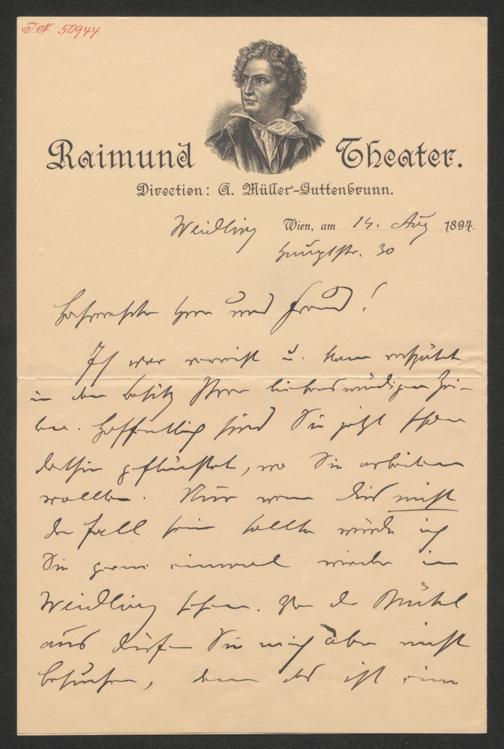 I.N. 50944
Raimund Theater.
Direction: A. Müller-Guttenbrunn.
Weidling Wien, am 14. Aug 1894.
Hauptstr. 30
Herr und Freund!
Ich war verreist u. kam verspätet
in den Besitz Ihrer liebenswürdigen Zei-
len. Hoffentlich sind Sie jetzt schon
dorthin geflüchtet, wo Sie arbeiten
wollten. Nur wenn dies nicht
der Fall sein sollte würde ich
Sie gerne einmal wieder in
Weidling sehen. Von der Brühl
aus dürfen Sie mich aber nicht
besuchen, denn das ist eine